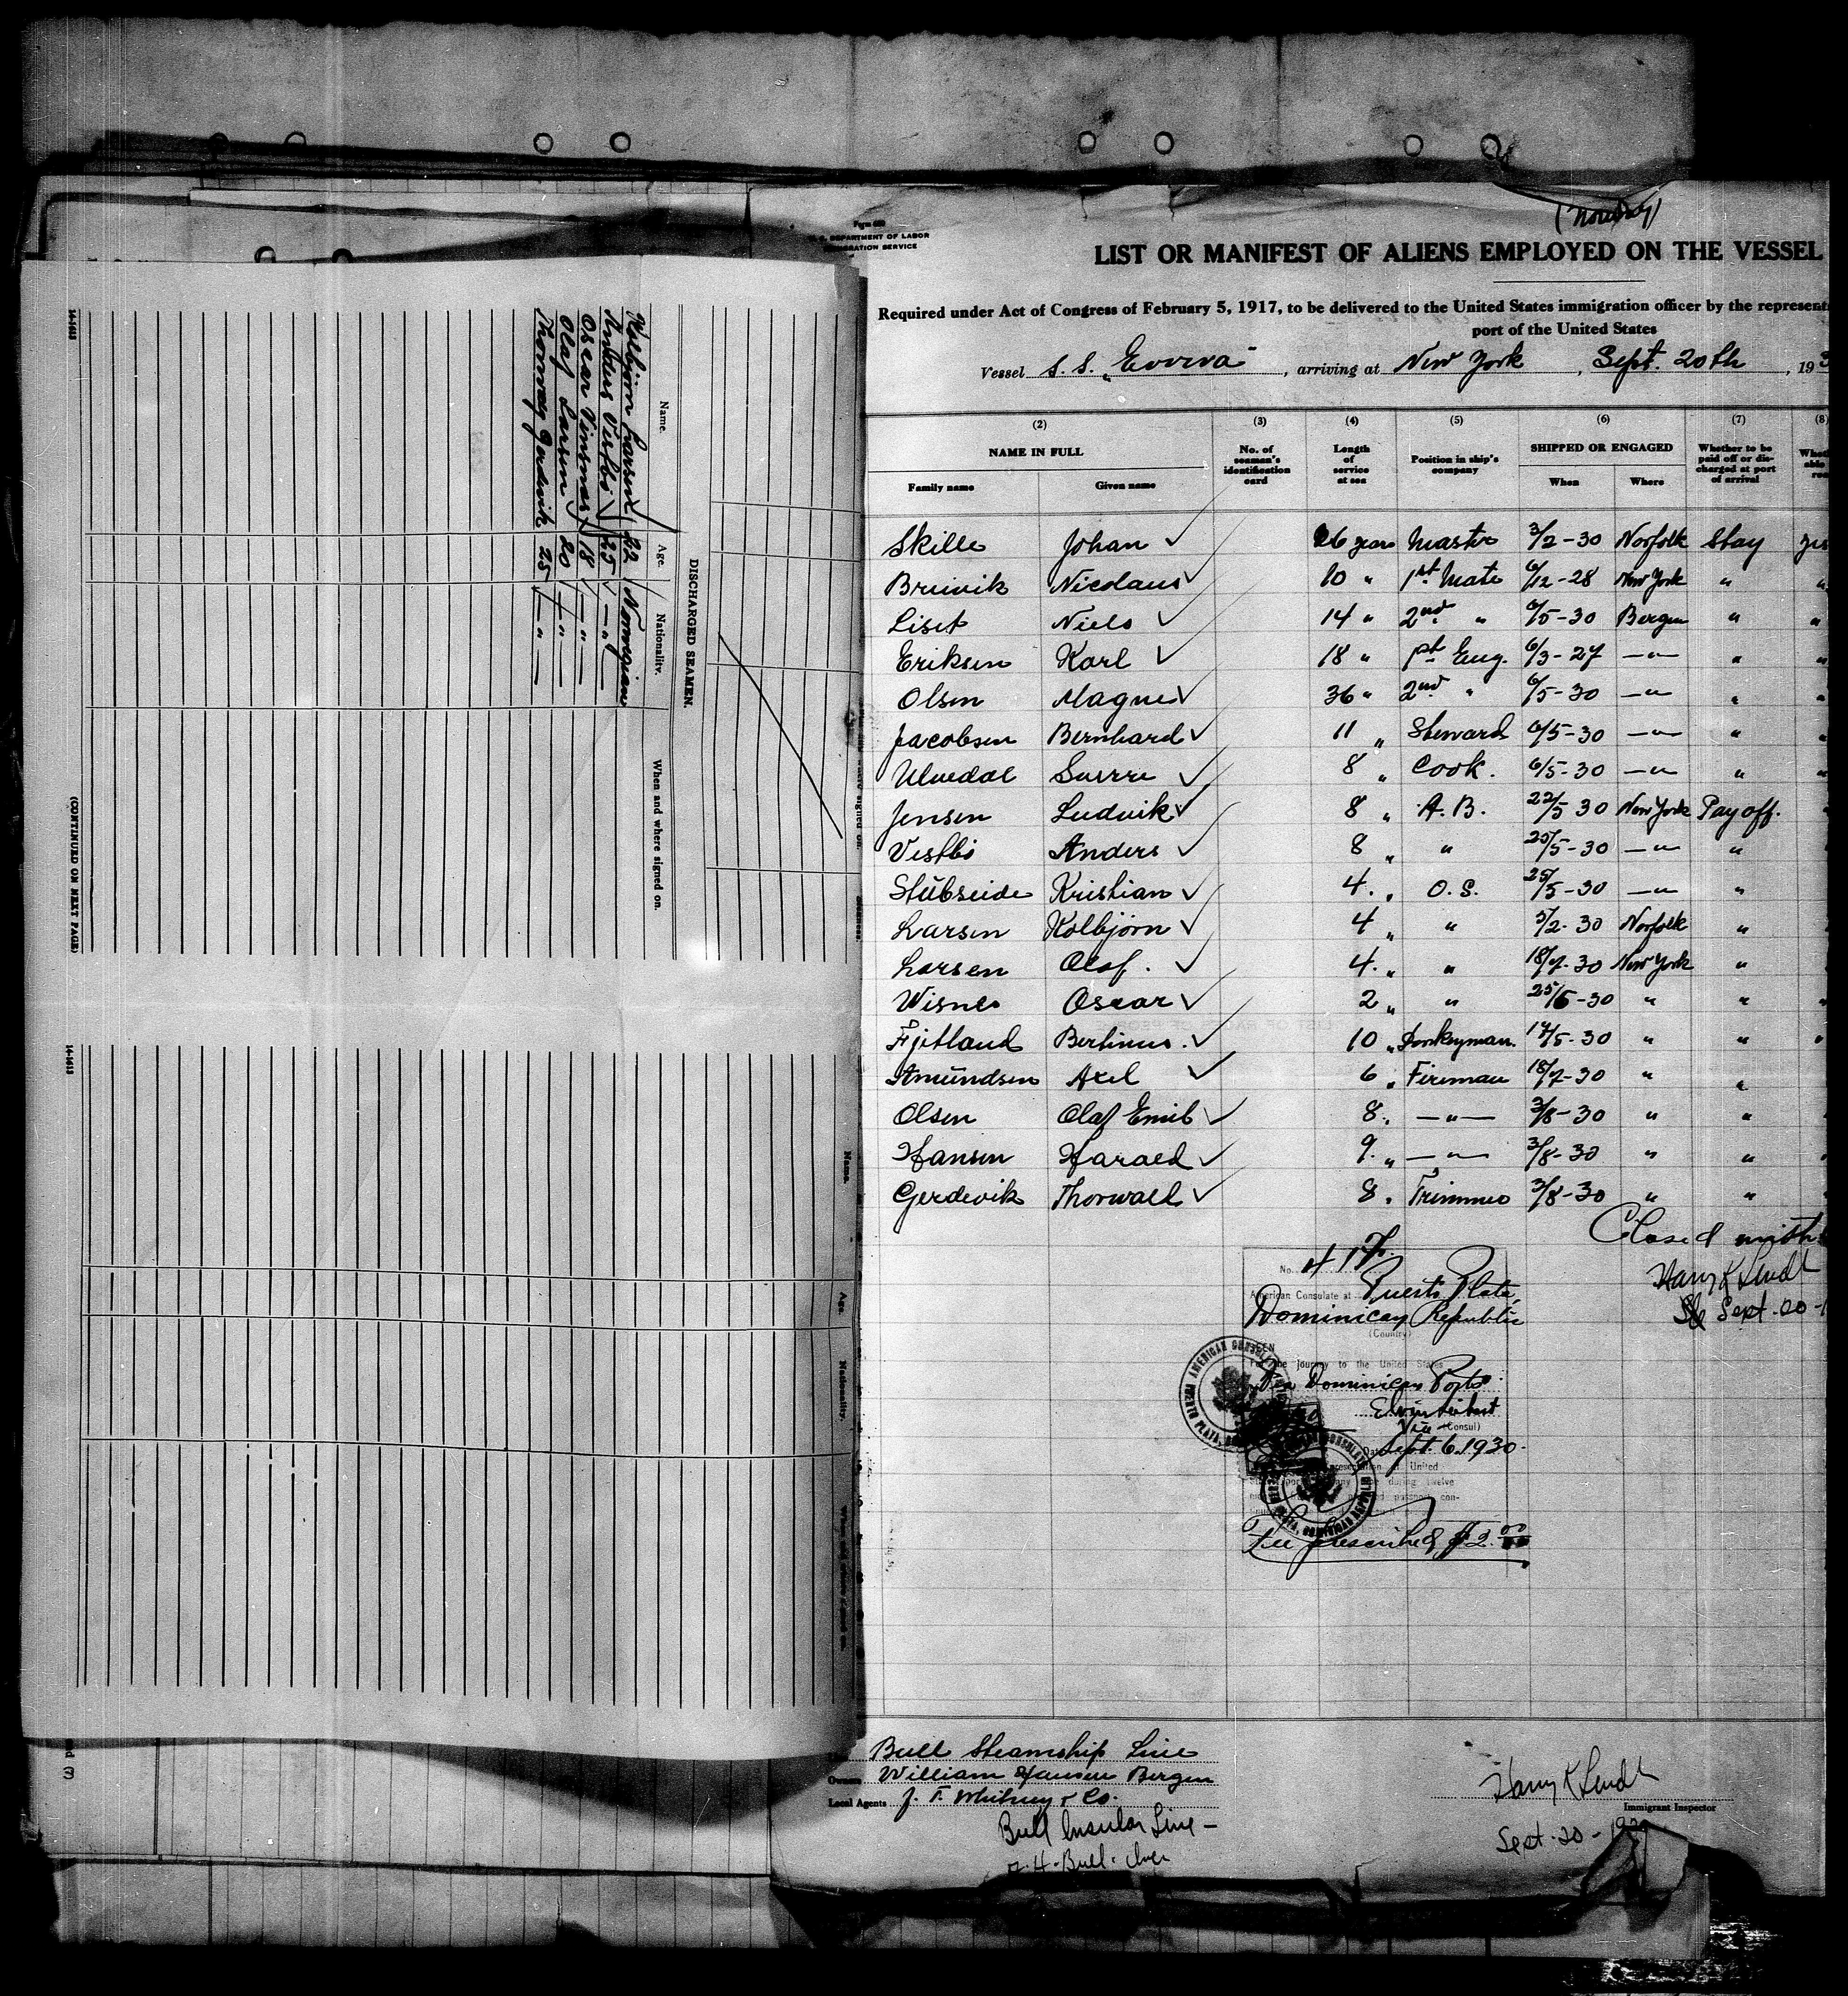 14-1613
(CONTINUED ON NEXT PAGE)
DISCHARGED SEAMEN.
Name. Age. Nationality. When and where signed on.
Kolbjörn Larsen 22 Norwegian
Anders Vestbö 25 — " —
Oscar Visnes 18 — " —
Olaf Larsen 20 — " —
Thorvald Gerdevik 25 — " —
14-1613
Name. Age. Nationality. When and where signed on.
3
U. S. DEPARTMENT OF LABOR
IMMIGRATION SERVICE
(Norway)
LIST OR MANIFEST OF ALIENS EMPLOYED ON THE VESSEL
Required under Act of Congress of February 5, 1917, to be delivered to the United States immigration officer by the represent
port of the United States
Vessel S. S. „Evviva" , arriving at New York , Sept. 20th , 193
(2) (3) (4) (5) (6) (7) (8)
NAME IN FULL No. of seaman's identification card Length of service at sea Position in ship's company SHIPPED OR ENGAGED Whether to be paid off or discharged at port of arrival
Family name Given name When Where
Skille Johan ✓ 26 years Master 3/2-30 Norfolk Stay yes
Bruvik Nicolaus ✓ 10 " 1st Mate 6/12-28 New York " "
Liset Niels ✓ 14 " 2nd " 6/5-30 Bergen " "
Eriksen Karl ✓ 18 " 1st Eng. 6/3-27 — " — " "
Olsen Magne ✓ 36 " 2nd " 6/5-30 — " — " "
Jacobsen Bernhard ✓ 11 " Steward 6/5-30 — " — " "
Ulvedal Sverre ✓ 8 " Cook. 6/5-30 — " — " "
Jensen Ludvik ✓ 8 " A. B. 22/5 30 New York Pay off.
Vestbö Anders ✓ 8 " " 25/5-30 — " — "
Stubseide Kristian ✓ 4. " O. S. 25/5-30 — " — "
Larsen Kolbjörn ✓ 4 " " 3/2-30 Norfolk "
Larsen Olaf. ✓ 4. " " 18/7-30 New York "
Wisnes Oscar ✓ 2 " " 25/5-30 " " "
Fjetland Bertinus. ✓ 10 " Donkeyman. 17/5-30 " " "
Amundsen Axel ✓ 6 " Fireman 18/7-30 " "
Olsen Olaf Emil ✓ 8. " — " — 3/8-30 " "
Hansen Harald ✓ 9. " — " — 3/8-30 " "
Gerdevik Thorwald ✓ 8. " Trimmer 3/8-30 " "
Closed with
Harry K Lendt
Sept. 20 -
No.
American Consulate at Puerto Plata,
Dominican Republic
(Country)
SEEN
For the journey to the United States
Via Dominican Ports
Vice (Consul)
Date Sept. 6. 1930.
AMERICAN CONSULATE
PUERTO PLATA, DOMINICAN REPUBLIC
Fee prescribed, $2.00
Bull Steamship Line
Owners William Hansen Bergen
Local Agents J. F. Whitney & Co.
Bull Insular Line -
Harry K Lendt
Immigrant Inspector
Sept. 20 - 1930